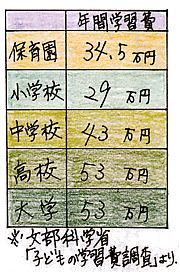 年間学習費
保育園 34.5万円
小学校 29万円
中学校 43万円
高校 53万円
大学 53万円
※文部科学省
「子どもの学習費調査」より。